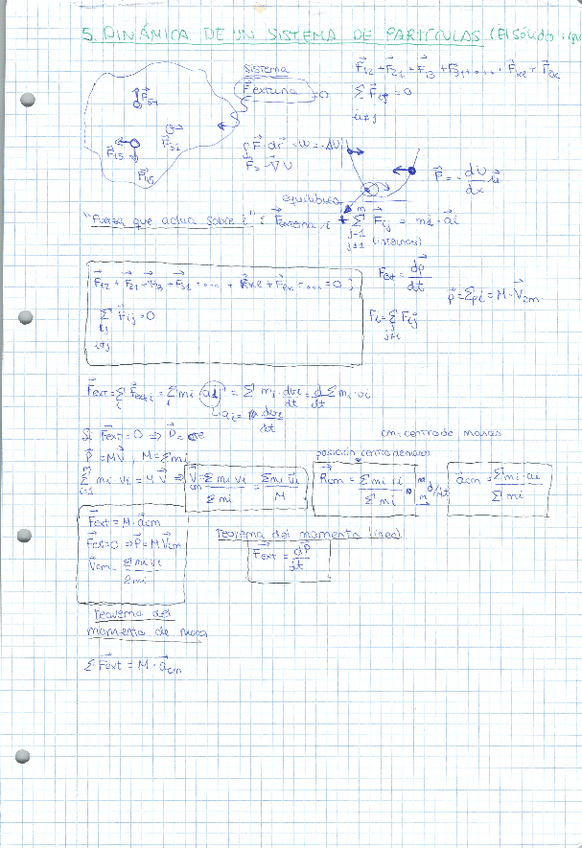 5. DINÁMICA DE UN SISTEMA DE PARTÍCULAS (El sólido
Sistema
F⃗externa = 0
F⃗12 + F⃗21 + F⃗13 + F⃗31 + ....
∑ F⃗ij = 0
i≠j
F⃗51
F⃗5i
F⃗i5
F⃗15
∫ F⃗·dr⃗ = W = -ΔU
F⃗ = -∇⃗U
F⃗ = - dU/dx u⃗
equilibrio
"Fuerza que actúa sobre i": F⃗externa i + ∑ F⃗ij = mi · a⃗i
j=1
j≠i (internas)
F⃗12 + F⃗21 + F⃗13 + F⃗31 + .... = 0
∑ F⃗ij = 0
i,j
i≠j
Fext = dp⃗/dt
p⃗ = ∑pi = M · V⃗cm
Fi = ∑ Fij
j≠i
F⃗ext = ∑ F⃗ext i = ∑ mi · ai = ∑ mi · dvi/dt = d/dt ∑ mi · vi
ai = dvi/dt
Si F⃗ext = 0 ⇒ P⃗ = cte
cm: centro de masas
P⃗ = MV⃗, M = ∑mi
posición centro de masas
∑ mi · vi = M V⃗ ⇒ V⃗cm = ∑ mi vi / ∑ mi = ∑ mi v⃗i / M
R⃗cm = ∑ mi ri / ∑ mi
d/dt
a⃗cm = ∑ mi · ai / ∑ mi
F⃗ext = M · a⃗cm
Fext = 0 ⇒ P⃗ = M V⃗cm
V⃗cm = ∑ mi vi / ∑ mi
Teorema del momento lineal
F⃗ext = dP⃗/dt
Teorema del
momento de masa
∑ F⃗ext = M · a⃗cm